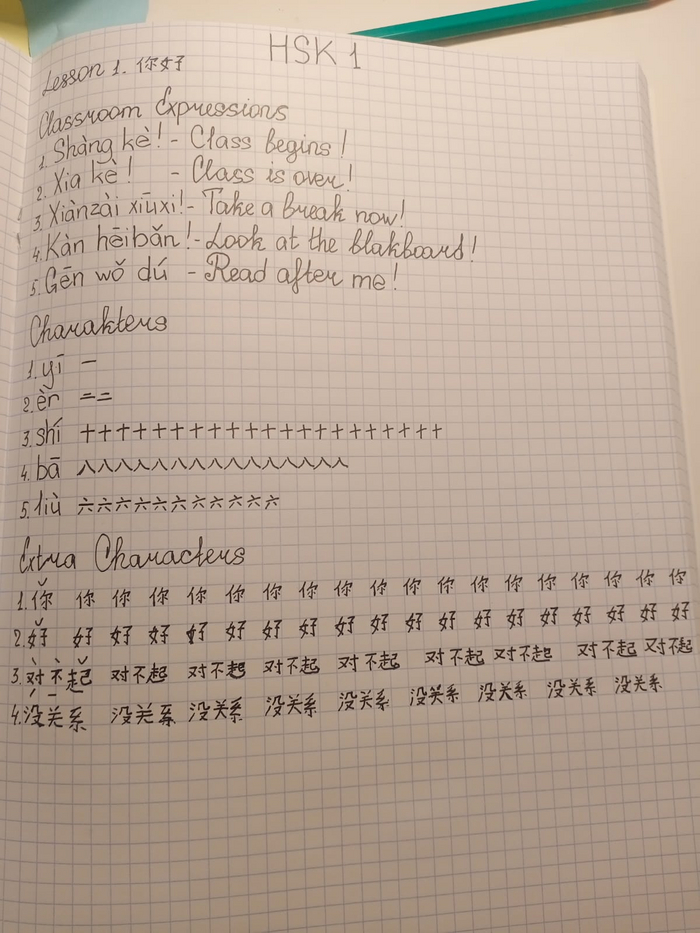 HSK 1
Lesson 1. 你好
Classroom Expressions
1. Shàng kè! - Class begins!
2. Xia kè! - Class is over!
3. Xiànzài xiūxi! - Take a break now!
4. Kàn hēibǎn! - Look at the blakboard!
5. Gēn wǒ dú - Read after me!
Charakters
1. yī 一
2. èr 二二
3. shí 十十十十十十十十十十十十十十十十十十十十
4. bā 八八八八八八八八八八八八八八八
5. liù 六六六六六六六六六六六
Extra Characters
1. 你 你 你 你 你 你 你 你 你 你 你 你 你 你 你 你 你 你 你
2. 好 好 好 好 好 好 好 好 好 好 好 好 好 好 好 好 好 好 好
3. 对不起 对不起 对不起 对不起 对不起 对不起 对不起 对不起 对不起
4. 没关系 没关系 没关系 没关系 没关系 没关系 没关系 没关系 没关系